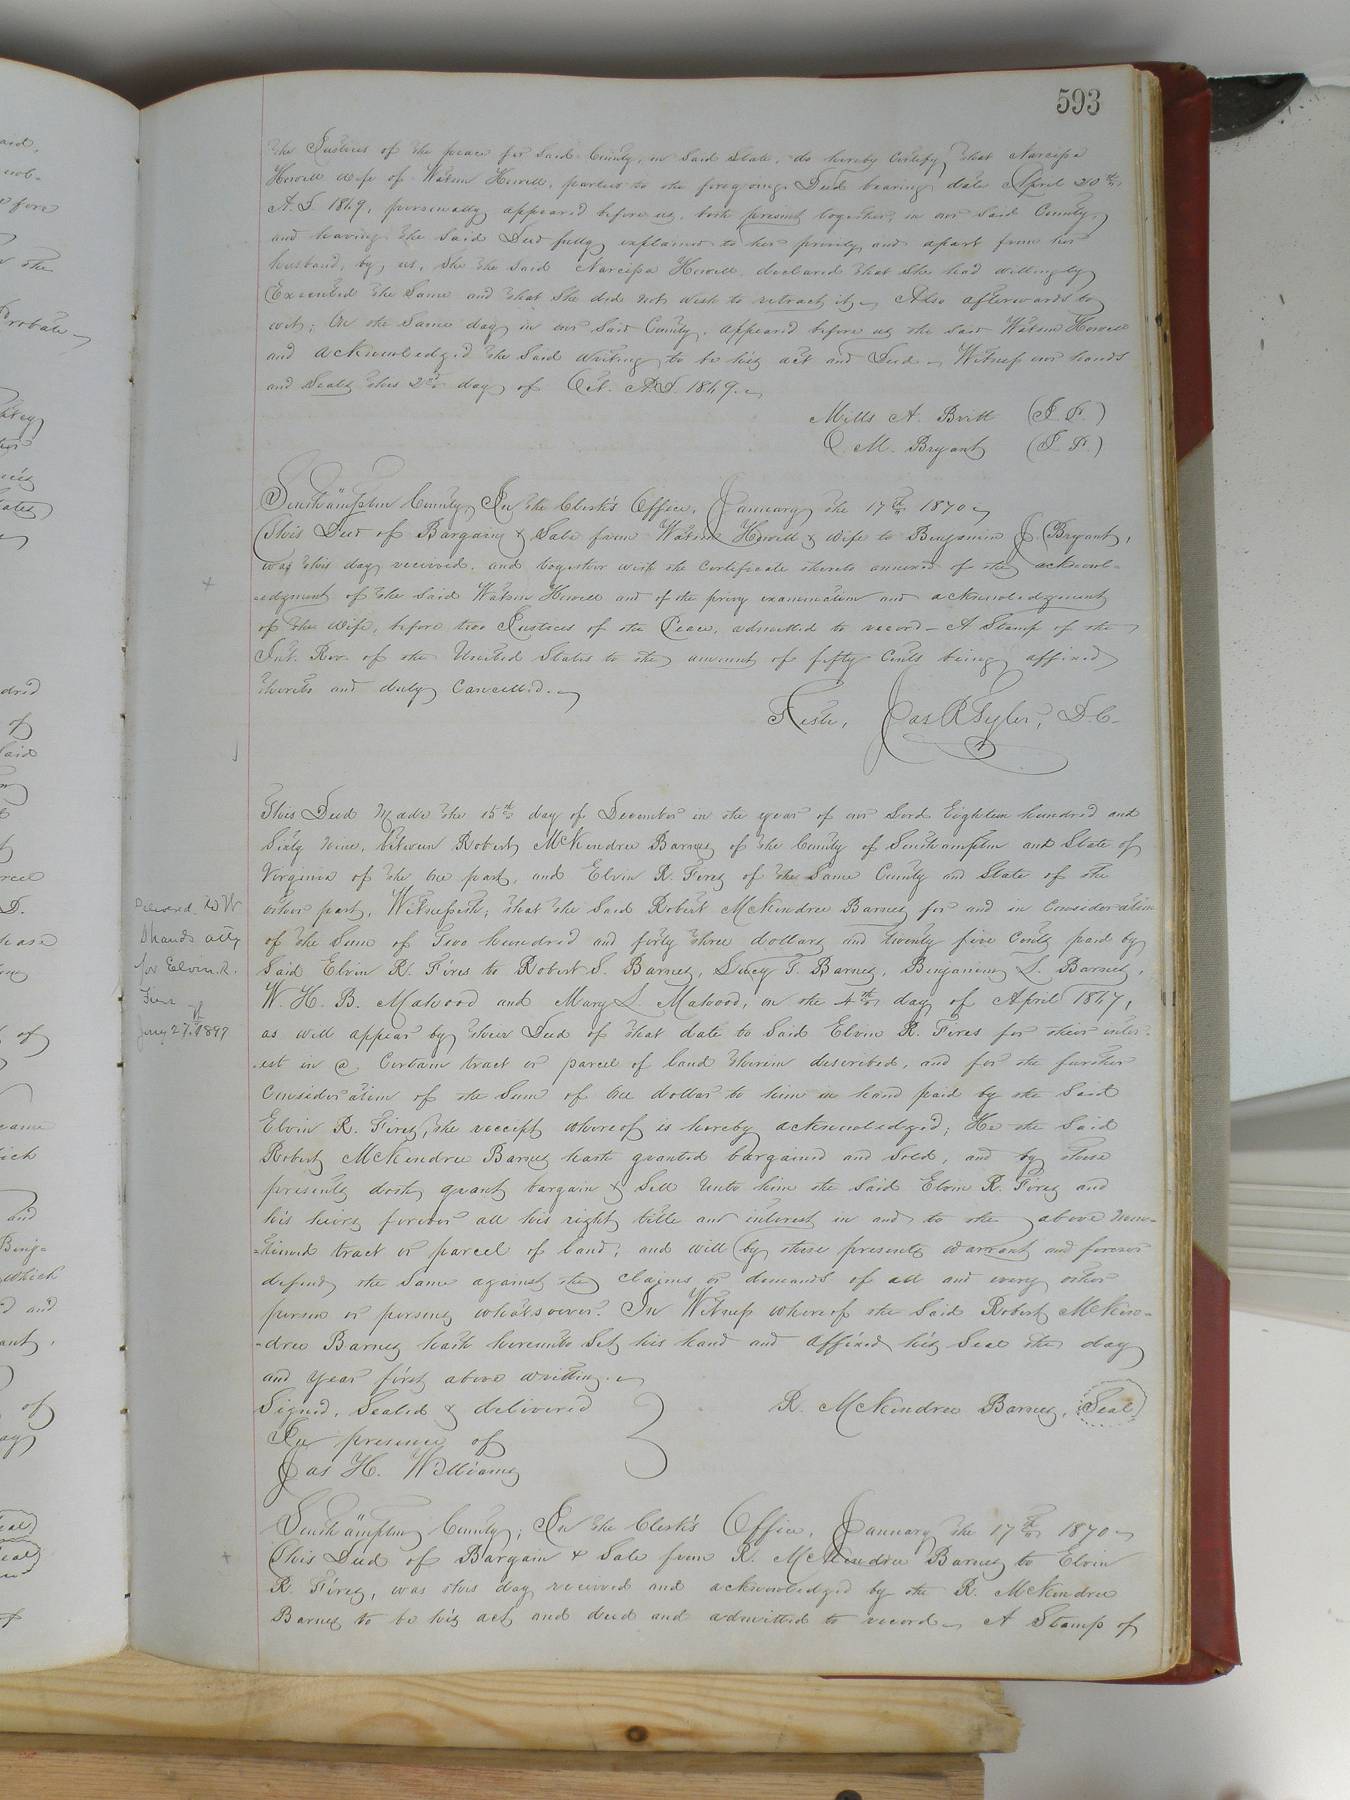 593
the Justices of the peace for said County, in said State, do hereby Certify that Narcissa
Howell wife of Watson Howell, parties to the foregoing Deed bearing date April 20th
A.D. 1869, personally appeared before us, both present together, in our said County,
and having the said Deed fully explained to her privily and apart from her
husband, by us, she the said Narcissa Howell declared that she had willingly
Executed the same and that she did not wish to retract it. Also afterwards to
wit; On the same day in our said County, appeared before us the said Watson Howell
and acknowledged the said writing to be his act and Deed. Witness our hands
and seals this 2nd day of Oct. A.D. 1869.
Mills A. Britt (J.P.)
Q. M. Bryant (J.P.)
Southampton County, In the Clerk's Office, January the 17th 1870
This Deed of Bargain & Sale from Watson Howell & Wife to Benjamin J. Bryant,
was this day received, and together with the certificate thereto annexed of the acknowl-
-edgment of the said Watson Howell and of the privy examination and acknowledgment
of the wife, before two Justices of the Peace, admitted to record - A Stamp of the
Int. Rev. of the United States to the amount of fifty Cents being affixed
thereto and duly Cancelled.
Teste, Jas R Tyler, D.C.
This Deed Made the 15th day of December in the year of our Lord Eighteen hundred and
Sixty nine, between Robert McKendree Barnes of the County of Southampton and State of
Virginia of the one part, and Elvin R. Fires of the Same County and State of the
other part, Witnesseth; that the said Robert McKendree Barnes for and in Consideration
of the Sum of Two hundred and forty three dollars and twenty five Cents paid by
said Elvin R. Fires to Robert S. Barnes, Lucy T. Barnes, Benjamin L. Barnes,
W. H. B. Matwood and Mary L. Matwood, on the 4th day of April 1867,
as will appear by their Deed of that date to said Elvin R. Fires for their inter-
-est in a Certain tract or parcel of land therein described, and for the further
Consideration of the Sum of One dollar to him in hand paid by the said
Elvin R. Fires, the receipt whereof is hereby acknowledged; He the said
Robert McKendree Barnes hath granted bargained and sold, and by these
presents doth grant bargain & Sell unto him the said Elvin R. Fires and
his heirs forever all his right title and interest in and to the above men-
-tioned tract or parcel of land; and will by these presents warrant and forever
defend the same against the claims or demands of all and every other
person or persons whatsoever. In Witness whereof the said Robert McKen-
-dree Barnes hath hereunto set his hand and affixed his Seal the day
and year first above written.
Signed, Sealed & delivered
R. McKendree Barnes, Seal
In presence of
Jas H. Williams
Delivered to W
Shands atty
for Elvin R.
Fires
Jany 27th 1899
Southampton County; In the Clerk's Office, January the 17th 1870
This Deed of Bargain & Sale from R. McKendree Barnes to Elvin
R. Fires, was this day received and acknowledged by the R. McKendree
Barnes to be his act and deed and admitted to record. A Stamp of